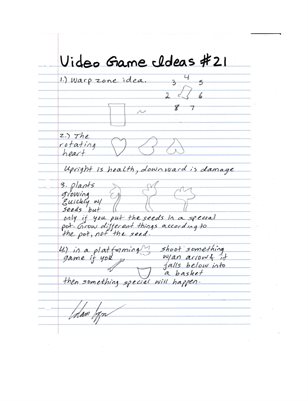 Video Game Ideas #21
1.) Warp zone idea.
3 4 5
2 6
8 7
2.) The
rotating
heart
Upright is health, downward is damage
3. plants
growing
quickly w/
seeds but
only if you put the seeds in a special
pot. Grow different things according to
the pot, not the seed.
in a platforming
game if you
shoot something
w/an arrow & it
falls below into
a basket
then something special will happen.